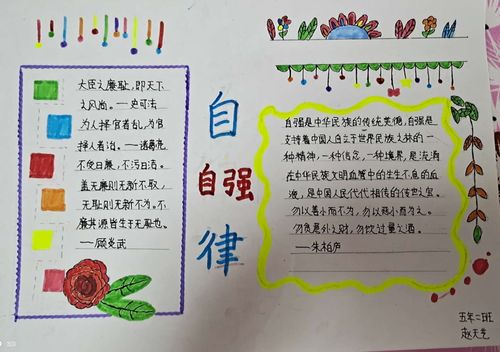 大臣之廉耻,即天下
之风尚。——史可法
为人择官者乱,为官
择人者治。——诸葛亮
不受曰廉,不污曰洁。
盖无廉则无新不取,
无耻则无新不为。不
廉其源皆生于无耻也。
——顾炎武
自
自强
律
自强是中华民族的传统美德,自强是
支持着中国人自立于世界民族之林的一
种精神,一种信念,一种境界,是流淌
在中华民族文明血管中的生生不息的血
液,是中国人民代代相传的传世之宝。
勿以善小而不为,勿以恶小而为之。
勿贪意外之财,勿饮过量之酒。
——朱柏庐
五年二班
赵天艺